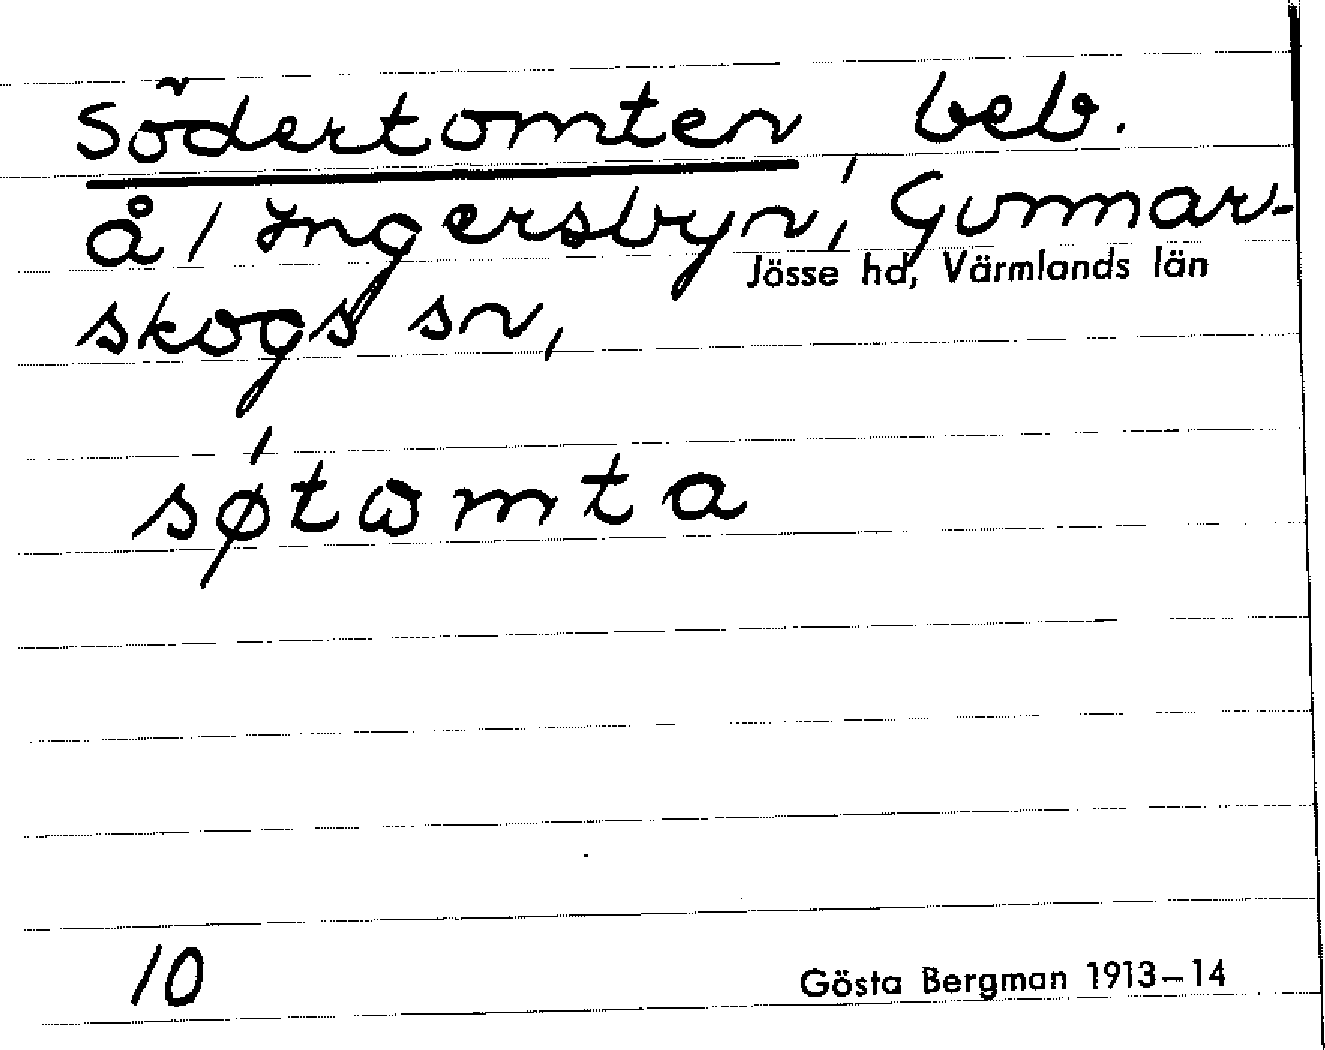 Södertomten, beb.
å 1 Ingersbyn, Gunnar-
Jösse hd, Värmlands län
skogs sn,
sǿtωmta
10
Gösta Bergman 1913–14